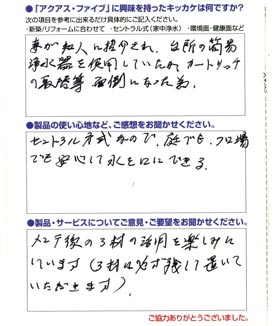 ●「アクアス・ファイブ」に興味を持ったキッカケは何ですか?
次の項目を参考に出来るだけ具体的にご記入ください。
・新築/リフォームに合わせて ・セントラル式(家中浄水) ・環境面・健康面など
妻が知人に紹介され、台所の簡易
浄水器を使用していたが カートリッヂ
の取替等 面倒になった為。
●製品の使い心地など、ご感想をお聞かせください。
セントラル方式なので、庭でも、フロ場
でも安心して水を口にできる。
●製品・サービスについてご意見・ご要望をお聞かせください。
メンテ後のろ材の活用を楽しみに
しています(ろ材は必ず残して置いて
いただきます)。
ご協力ありがとうございました。